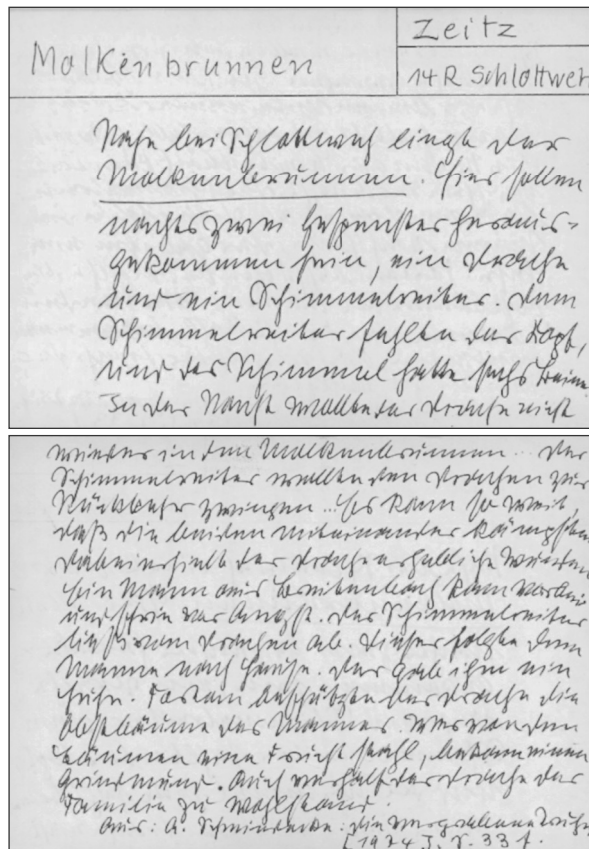 Molkenbrunnen
Zeitz
14 R Schlottweh
Nahe bei Schlottweh liegt der
Molkenbrunnen. Hier sollen
nachts zwei Gespenster heraus-
gekommen sein, ein Drache
und ein Schimmelreiter. Dem
Schimmelreiter fehlte der Kopf,
und der Schimmel hatte sechs Beine
In der Nacht wollte der Drache nicht
wieder in den Molkenbrunnen... Der
Schimmelreiter wollte den Drachen zur
Rückkehr zwingen... Es kam so weit,
daß die beiden miteinander kämpften
Dabei erhielt der Drache erhebliche Wunden
Ein Mann aus Breitenbach kam vorbei
und schrie vor Angst. Der Schimmelreiter
ließ vom Drachen ab. Dieser folgte dem
Manne nach Hause. Der gab ihm ein
Huhn. Fortan beschützte der Drache die
Obstbäume des Mannes. Wer von den
Bäumen eine Frucht stahl, bekam einen
Grindmund. Auch verhalf der Drache der
Familie zu Wohlstand.
Aus: A. : Die vergrabene Truhe
[1974], S. 33 f.